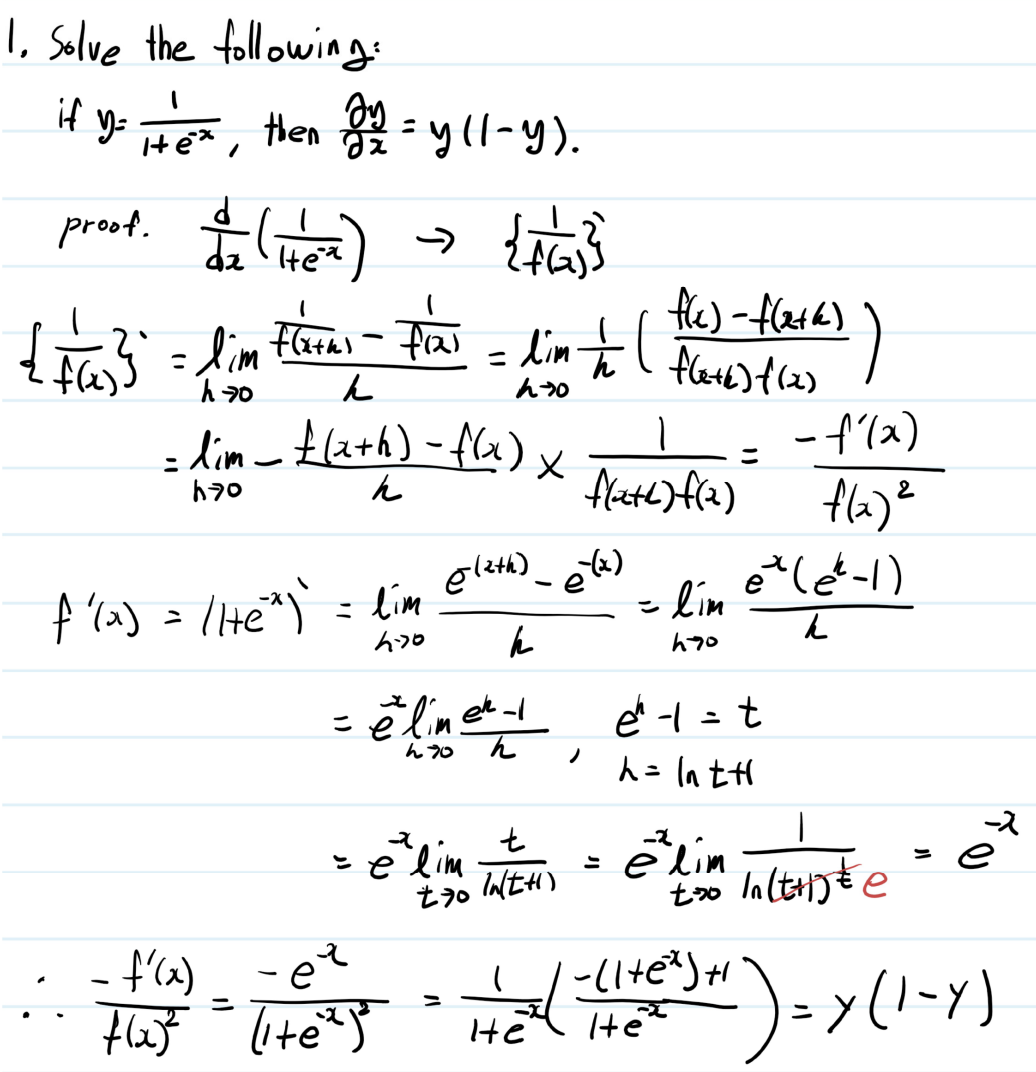 1. Solve the following:
if y= 1/(1+e^-x), then ∂y/∂x = y(1-y).
proof. d/dx (1/(1+e^-x)) → {1/f(x)}`
{1/f(x)}` = lim_{h→0} (1/f(x+h) - 1/f(x))/h = lim_{h→0} 1/h ( (f(x)-f(x+h))/(f(x+h)f(x)) )
= lim_{h→0} - (f(x+h)-f(x))/h × 1/(f(x+h)f(x)) = -f'(x)/f(x)^2
f'(x) = (1+e^-x)` = lim_{h→0} (e^-(x+h) - e^-(x))/h = lim_{h→0} e^-x(e^h-1)/h
= e^-x lim_{h→0} (e^h-1)/h , e^h-1 = t
h = ln t+1
= e^-x lim_{t→0} t/ln(t+1) = e^-x lim_{t→0} 1/ln(t+1)^(1/t) e = e^-x
∴ -f'(x)/f(x)^2 = -e^-x/(1+e^-x)^2 = 1/(1+e^-x) ( (-(1+e^-x)+1)/(1+e^-x) ) = y(1-y)